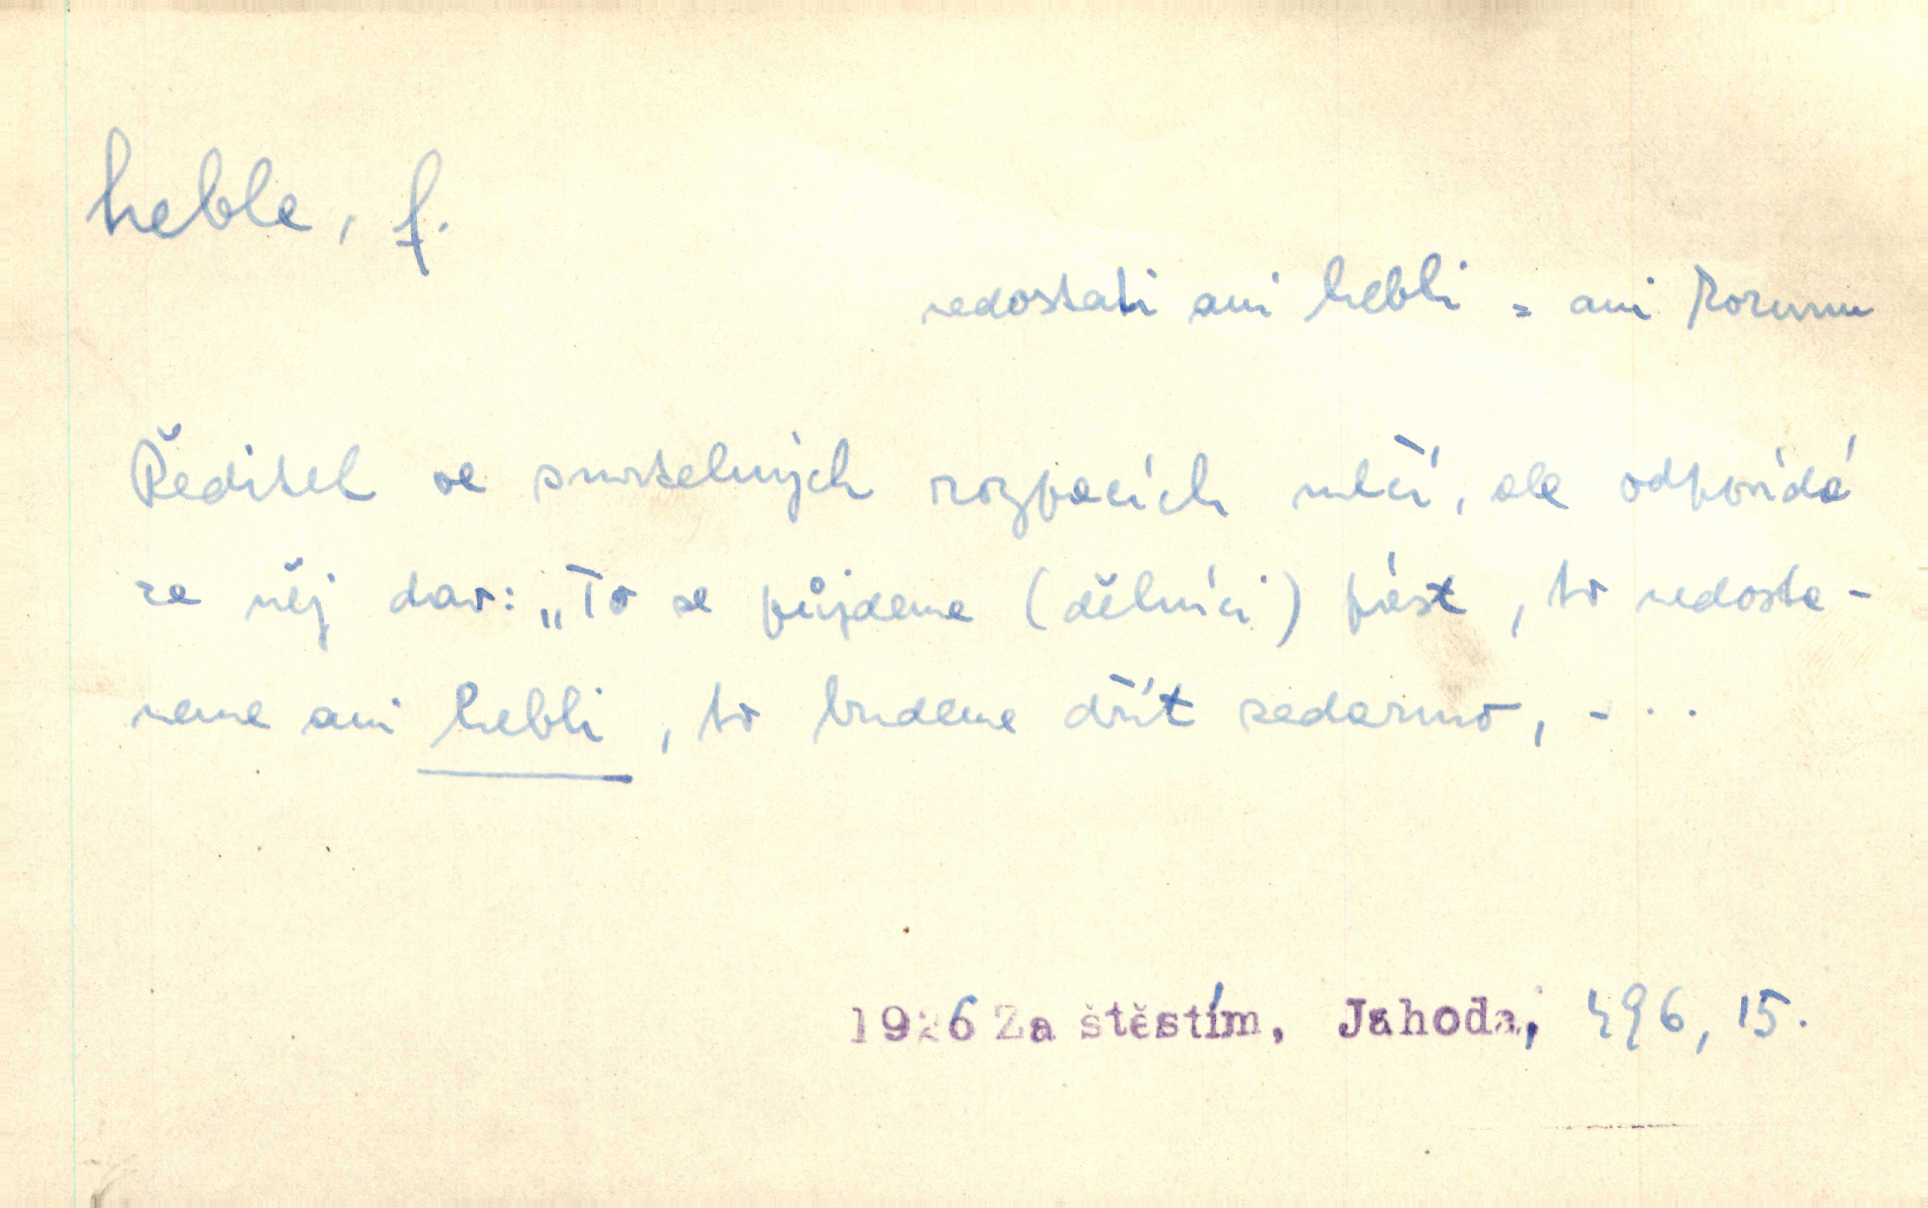 heble, f.
nedostati ani hebli = ani korunu
Ředitel ve smrtelných rozpacích mlčí, ale odpovídá
za něj dav: „To se půjdeme (dělníci) pást, to nedosta-
neme ani hebli, to budeme dřít zadarmo, - . . .
1926 Za štěstím, Jahoda, 496, 15.